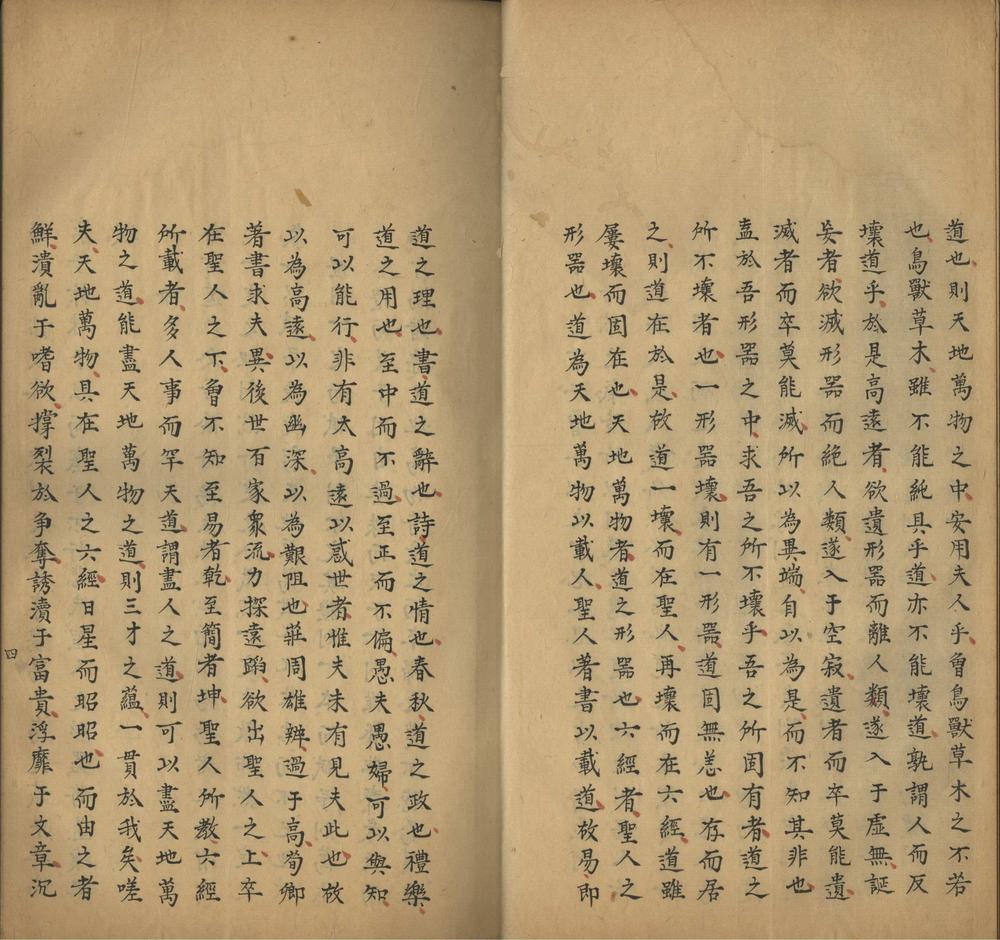 道也則天地萬物之中安用夫人乎曾鳥獸草木之不若
也鳥獸草木雖不能純具乎道亦不能壞道孰謂人而反
壞道乎於是高遠者欲遺形器而離人類遂入于虛無誕
妄者欲滅形器而絶人類遂入于空寂遺者而卒莫能遺
滅者而卒莫能滅所以為異端自以為是而不知其非也
盍於吾形器之中求吾之所不壞乎吾之所固有者道之
所不壞者也一形器壞則有一形器道固無恙也存而居
之則道在於是故道一壞而在聖人再壞而在六經道雖
屢壞而固在也天地萬物者道之形器也六經者聖人之
形器也道為天地萬物以載人聖人著書以載道故易即
道之理也書道之辭也詩道之情也春秋道之政也禮樂
道之用也至中而不過至正而不偏愚夫愚婦可以與知
可以能行非有太高遠以惑世者惟夫未有見夫此也故
以為高遠以為幽深以為艱阻也莊周雄辨過于高荀卿
著書求夫異後世百家衆流力探遠蹈欲出聖人之上卒
在聖人之下曾不知至易者乾至簡者坤聖人所教六經
所載者多人事而罕天道謂盡人之道則可以盡天地萬
物之道能盡天地萬物之道則三才之蘊一貫於我矣嗟
夫天地萬物具在聖人之六經日星而昭昭也而由之者
鮮潰亂于嗜欲撐裂於争奪誘瀆于富貴浮靡于文章沉
四